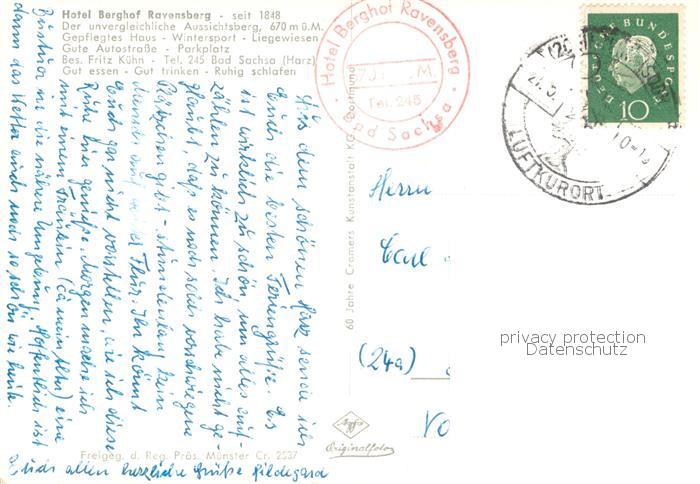 Hotel Berghof Ravensberg - seit 1848
Der unvergleichliche Aussichtsberg, 670 m ü.M.
Gepflegtes Haus - Wintersport - Liegewiesen
Gute Autostraße - Parkplatz
Bes. Fritz Kühn - Tel. 245 Bad Sachsa (Harz)
Gut essen - Gut trinken - Ruhig schlafen
Hotel Berghof Ravensberg
M.
Tel. 245
Bad Sachsa
DEUTSCHE BUNDESPOST
10
LUFTKURORT
Aus dem schönen Harz sende ich
Euch die besten Feriengrüße. Es
ist wirklich zu schön um alles auf-
zählen zu können. Ich habe nicht ge-
glaubt, daß es noch solch verschwiegene
Plätzchen gibt - stundenlang kein
Mensch auf Flur. Ihr könnt
Euch gar nicht vorstellen, wie ich diese
Ruhe hier genieße. Morgen mache ich
mit einem Fräulein (ca mein Alter) eine
Bustour in die nähere Umgebung. Hoffentlich ist
dann das Wetter auch noch so schön wie heute.
Euch allen herzliche Grüße Hildegard
60 Jahre Cramers Kunstanstalt KG, Dortmund
Herrn
Carl
(24a)
Vo
privacy protection
Datenschutz
Agfa
Originalfoto
Freigeg. d. Reg. Präs. Münster Cr. 2537